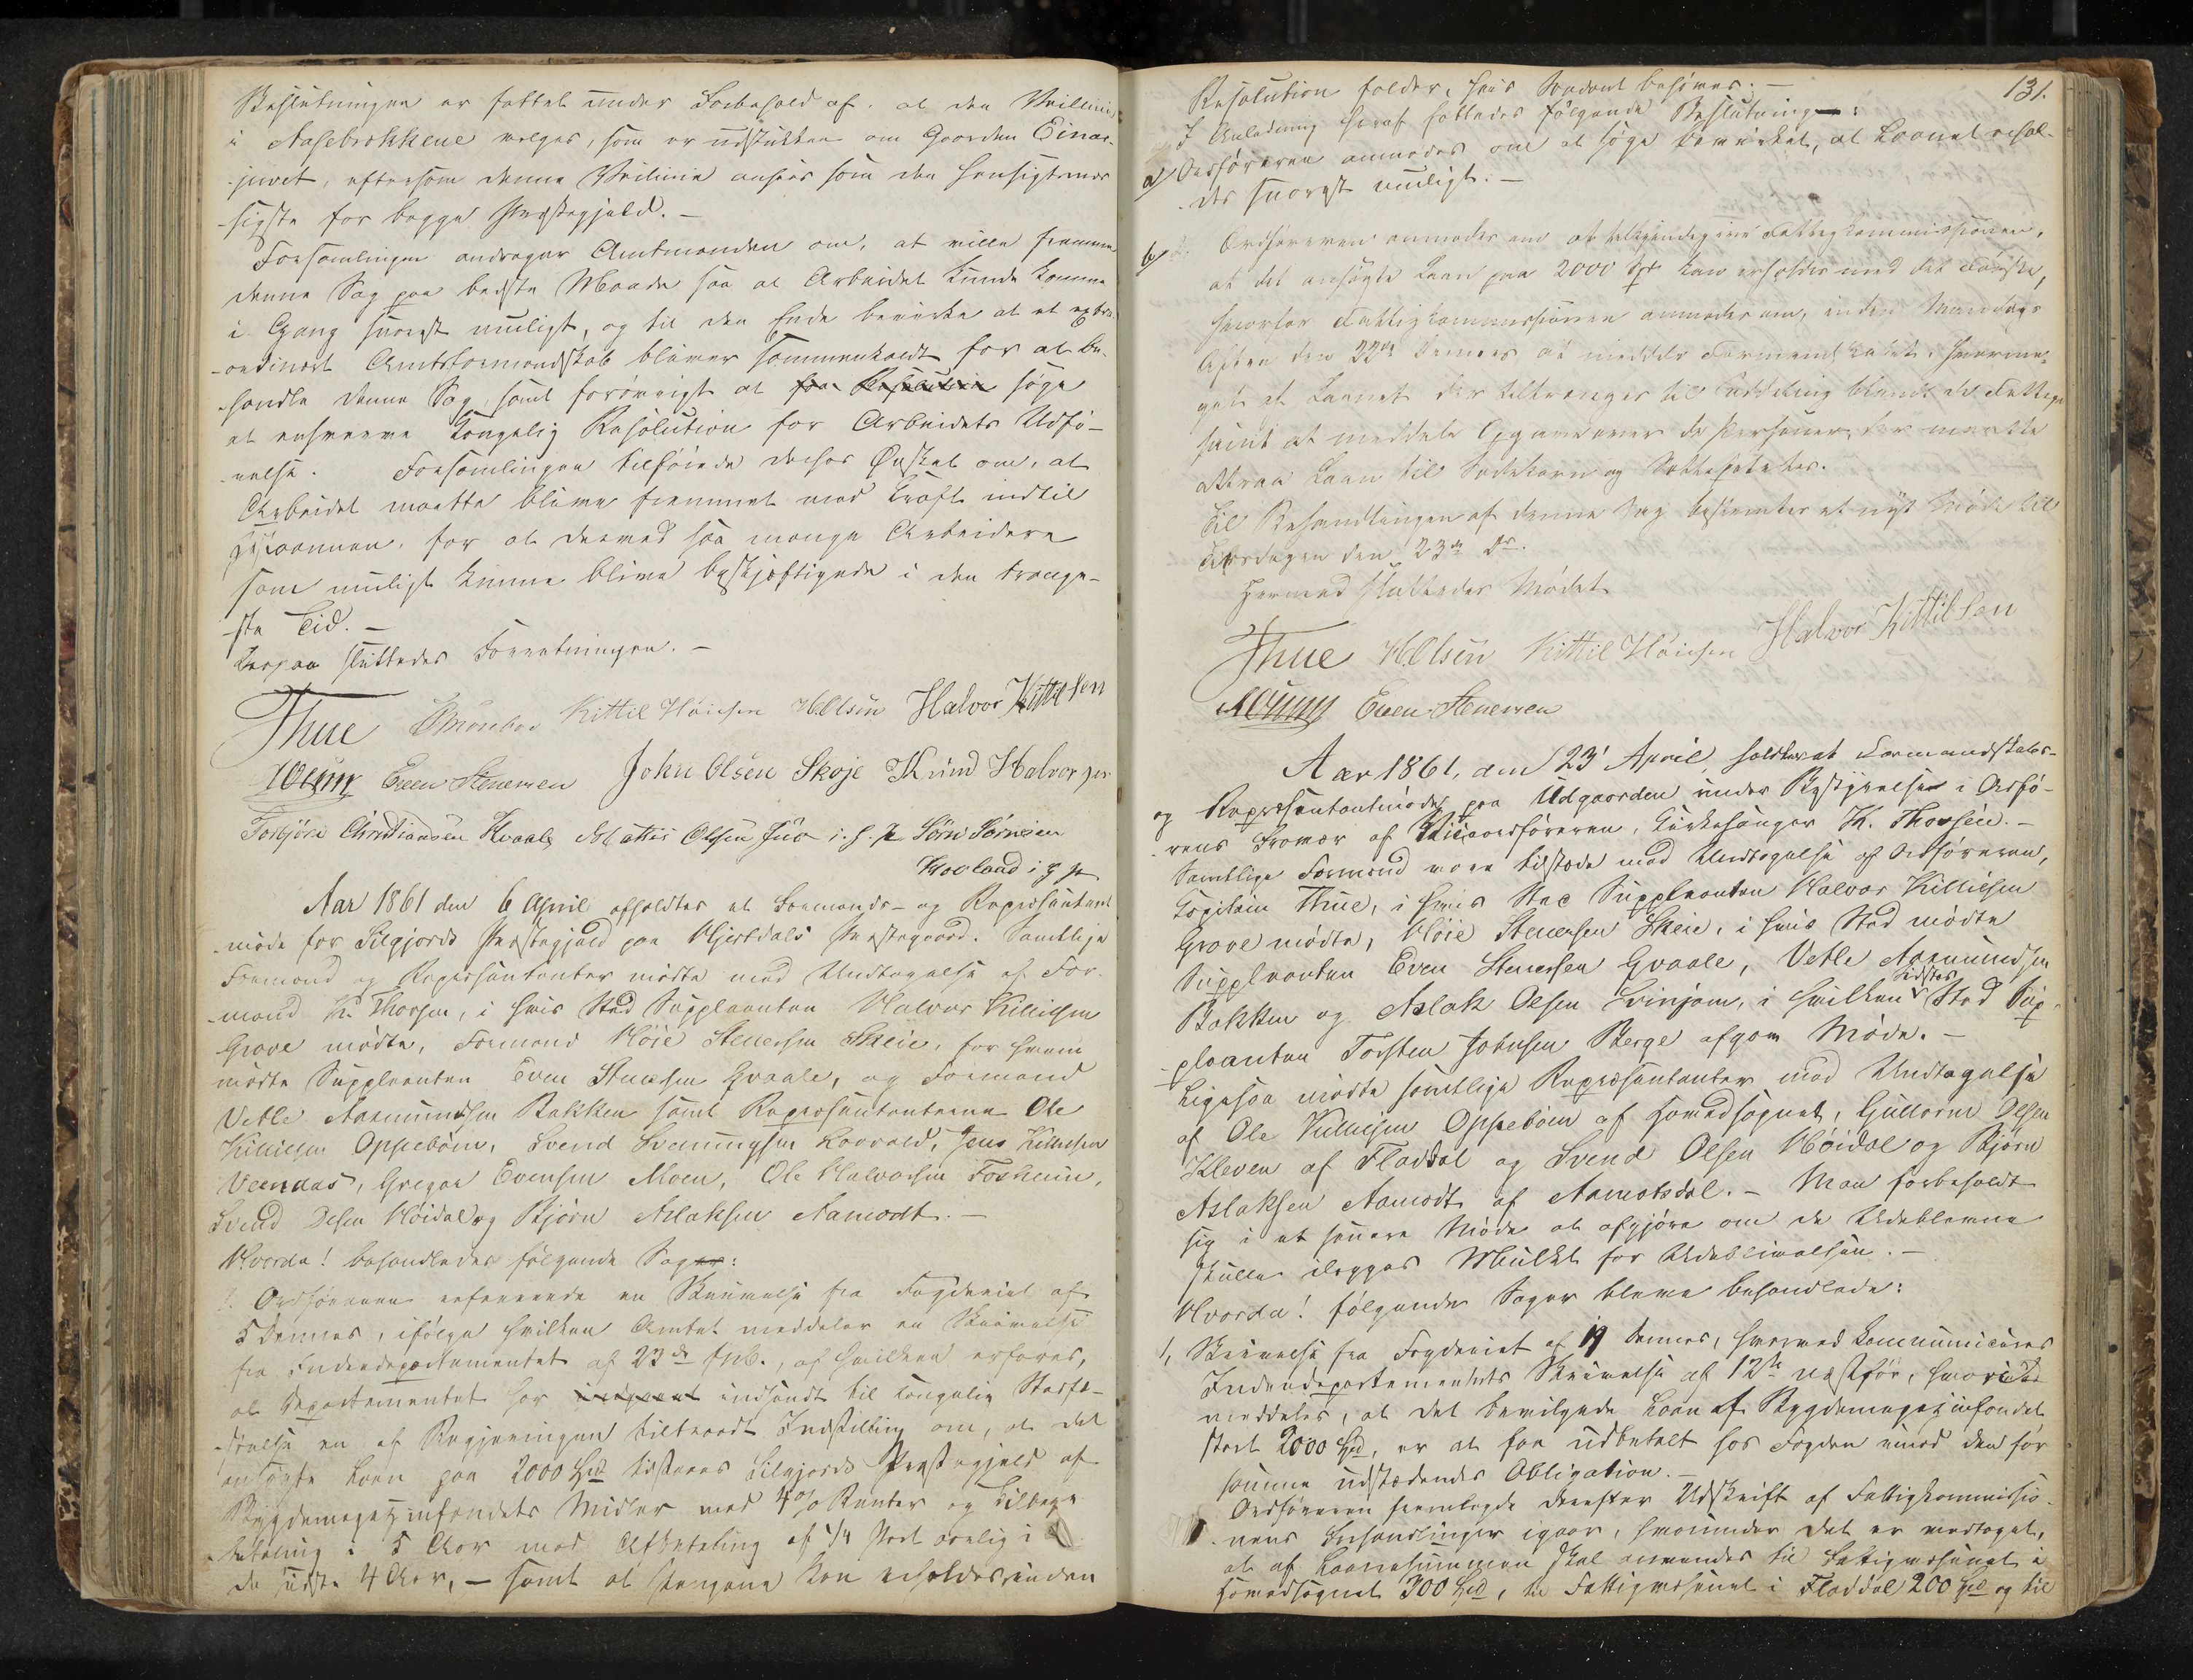 Beslutningen er fattet under Forbehold af, at den Veilinie
i Aasebrokkene vælges, som er udstukken om Gaarden Einar-
juvet, eftersom denne Veilinie ansees som den hensigtsmæs-
sigste for begge Præstegjeld. –
Forsamlingen andrager Amtmanden om, at ville fremme
denne Sag paa bedste Maade saa at Arbeidet kunde komme
i Gang snarest muligt, og til den Ende bevirke at et extra-
ordinært Amtsformandskab bliver sammenkaldt for at be-
handle denne Sag, samt forøvrigt at faa Resolution søge
at erhverve Kongelig Resolution for Arbeidets Udfø-
relse. Forsamlingen tilføiede derhos Ønsket om, at
Arbeidet maatte blive fremmet med Kraft indtil
Høiaannen, for at dermed saa mange Arbeidere
som muligt kunne blive beskjæftigede i den trange-
ste Tid. –
Derpaa sluttedes Forretningen. –
Thue Kittil Høiesen H. Olsen Halvor Kittilsen
Even Stenersen John Olsen Skoje Halvorsen
Torbjørn Christiansen Kvaale Mattis Olsen Juv i. h. P. Sørn Sørnsen
Hovland i h P
Aar 1861 den 6 April afholdtes et Formands- og Repræsentant-
møde for Silgjords Præstegjeld paa Hjertdals Præstegaard. Samtlige
Formænd og Repræsentanter mødte med Undtagelse af For-
mand K. Thorsen, i hvis Sted Suppleanten Halvor Kittilsen
Grave mødte, Formand Høie Stenersen Skeie, for hvem
mødte Suppleanten Even Stenersen Gvaale, og Formand
Vetle Aanundsen Bakken samt Repræsentanterne Ole
Kittilsen Oppebøen, Svend Svenningsen Jens Kittilsen
Veenaas, Gregar Evensen Moen, Ole Halvorsen Foskeim,
Svend Olsen Høidal og Bjørn Aslaksen Aamodt. –
Hvorda! behandledes følgende Sager:
1. Ordføreren refererede en Skrivelse fra Fogderiet af
5 dennes, ifølge hvilken Amtet meddeler en Skrivelse
fra Indredepartementet af 23de f. M., af hvilken erfares,
at Departementet har indsendt til Kongelig Stadfæ-
stelse en af Regjeringen tiltraadt Indstilling om, at det
ansøgte Laan paa 2000 Spd tilstaaes Silgjords Præstegjeld af
Bygdemagazinfondets Midler mod 4% Renter og Tilbage-
betaling i 5 Aar med Afbetaling af 1/4 Part aarlig i
de sidste 4 Aar, – samt at Pengene kan erholdes, inden
131.
Resolution falder, hvis Saadant behøves. –
I Anledning heraf fattedes følgende Beslutning:
a) Ordføreren anmodes om at søge bevirket, at Laanet erhol-
des snarest muligt. –
b) Ordføreren anmodes om at tilkjendegive Fattigkommissionen,
at det ansøgte Laan paa 2000 Spd kan erholdes med det Første,
hvorfor Fattigkommissionen anmodes om, inden Mandags
Aften den 22de dennes at meddele Formandskabet, hvorme-
get af Laanet der tiltrænges til Uddeling blandt de Fattige
samt at meddele Opgave over de Personer, der maatte
attraa Laan til Sædekorn og Sættepoteter.
Til Behandlingen af denne Sag bestemtes et nyt Møde til
Tirsdagen den 23de ds.
Hermed sluttedes Mødet
Thue H. Olsen Kittil Høiesen Halvor Kittilsen
Even Stenersen
Aar 1861, den 23' April, holdtes et Formandskabs-
og Repræsentantmøde paa Udgaarden under Bestyrelse i Ordfø-
rens Fravær af Viceordføreren, Kirkesanger K. Thorsen. –
Samtlige Formænd vare tilstede med Undtagelse af Ordføreren,
Kapitain Thue, i hvis Sted Suppleanten Halvor Kittilsen
Grave mødte, Høie Stenersen Skeie, i hvis Sted mødte
Suppleanten Even Stenersen Gvaale, Vetle Aanundsen
Bakken og Aslak Olsen Svinjom, i hvilken Sidstes Sted Sup-
pleanten Torsten Johnsen Berge afgav Møde. –
Ligesaa mødte samtlige Repræsentanter med Undtagelse
af Ole Kittilsen Oppebøen af Hovedsognet, Guttorm Olsen
Kleven af Flatdal og Svend Olsen Høidal og Bjørn
Aslaksen Aamodt af Aamotsdal. – Man forbeholdt
sig i et senere Møde at afgjøre om de Udeblevne
skulle ilægges Mulkt for Udeblivelsen. –
Hvorda! følgende Sager bleve behandlede:
1, Skrivelse fra Fogderiet af 19 dennes, hvorved kommuniceres
Indredepartementets Skrivelse af 12te næstfør, hvori
meddeles, at det bevilgede Laan af Bygdemagazinfondet
stort 2000 Spd, er at faa udbetalt hos Fogden imod den for
samme udstedendes Obligation. –
Ordføreren fremlagde derefter Udskrift af Fattigkommissio-
nens Forhandlinger igaar, hvorunder det er vedtaget,
at af Laanesummen skal anvendes til Fattigvæsenet i
Hovedsognet 300 Spd, til Fattigvæsenet i Flatdal 200 Spd og til